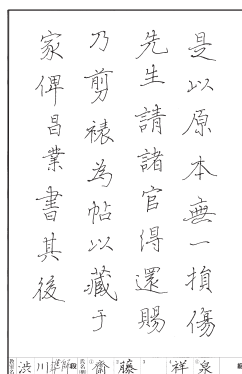 是以原本無一損傷
先生請諸官得還賜
乃剪裱為帖以藏于
家俾昌業書其後
渋川 段 齋藤 祥泉